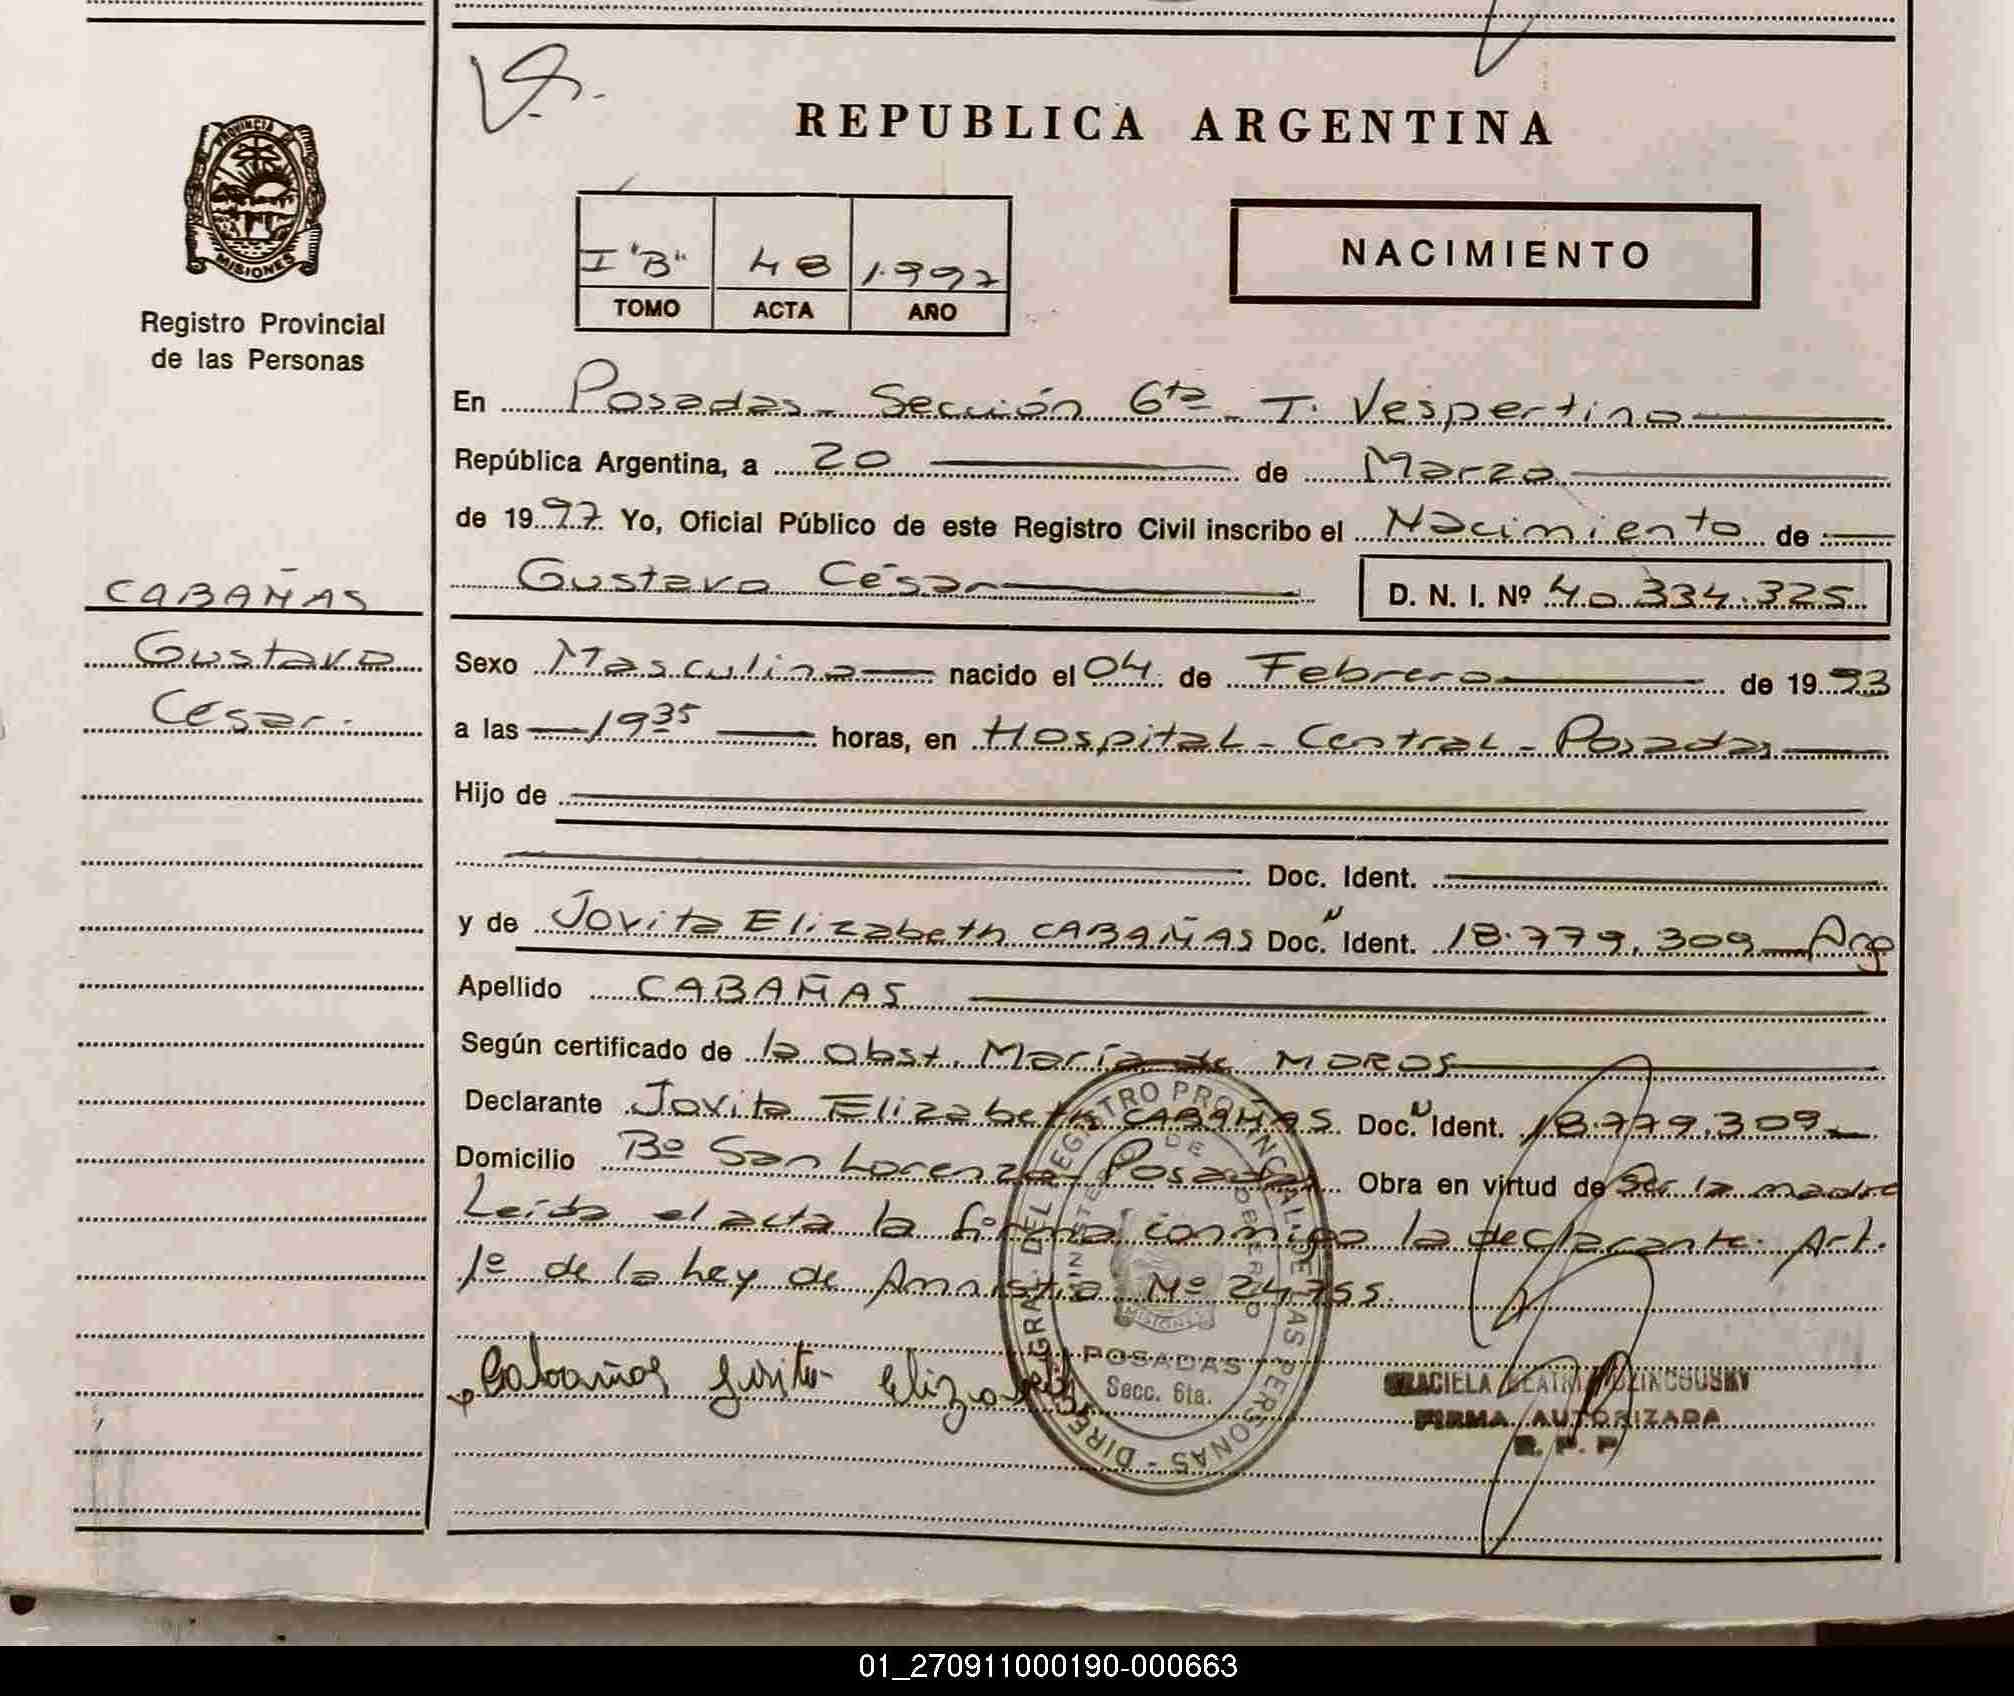 REPUBLICA ARGENTINA
PROVINCIA DE
MISIONES
Registro Provincial
de las Personas
I "B" 48 1.997
TOMO ACTA AÑO
NACIMIENTO
En Posadas - Sección 6ta - T. Vespertino
República Argentina, a 20 de Marzo
de 1997. Yo, Oficial Público de este Registro Civil inscribo el Nacimiento de
Gustavo César D. N. I. Nº 40.334.325
CABAÑAS
Gustavo
César.
Sexo Masculino nacido el 04 de Febrero de 1993
a las 19 35 horas, en Hospital - Central - Posadas
Hijo de
Doc. Ident.
y de Jovita Elizabeth CABAÑAS Doc. Ident. 18.779.309 Arg
Apellido CABAÑAS
Según certificado de la obst. María de MOROS
Declarante Jovita Elizabeth CABAÑAS Doc. Ident. 18.779.309
Domicilio Bº San Lorenzo - Posadas Obra en virtud de Ser la madre
Leída el acta la firma conmigo la declarante. Art.
1º de la Ley de Amnistia Nº 24.755.
Cabañas Jovita Elizabeth
DIREC. GRAL. DEL REGISTRO PROVINCIAL DE LAS PERSONAS
MINISTERIO DE GOBIERNO
MISIONES
POSADAS
Secc. 6ta.
GRACIELA BEATRIZ
FIRMA AUTORIZADA
R. P. P
01_270911000190-000663